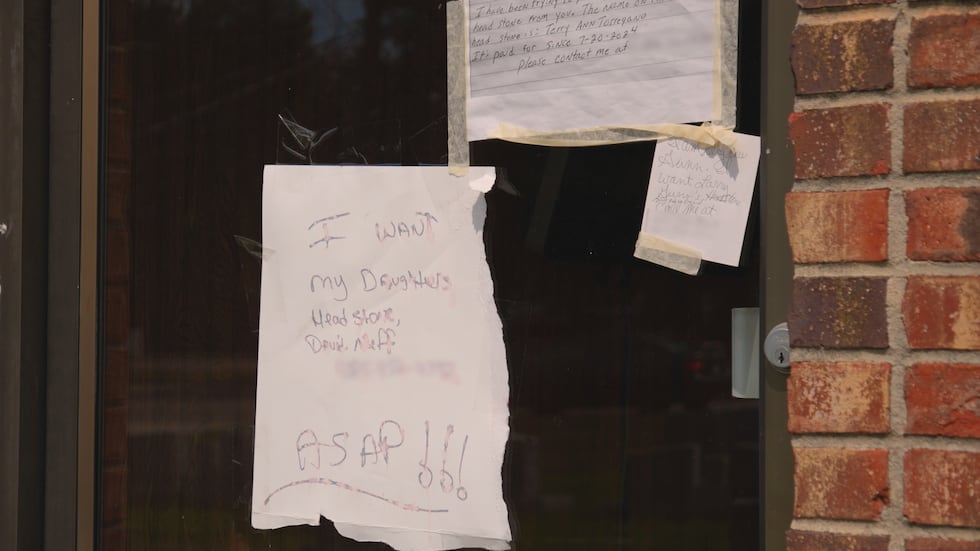 I have been trying to
head stone from you. The name on the
head stone is: Terry Ann Torregano
It's paid for since 7-20-2024
please contact me at
want Larry
me at
I WANT
my Daughters
Head stone,
David Neff
ASAP!!!